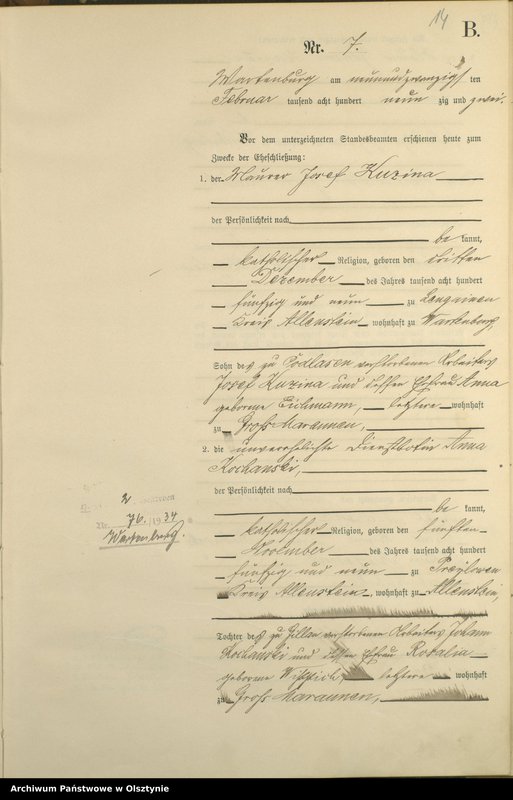 14
B.
Nr. 7.
Wartenburg am neunundzwanzigsten
Februar tausend acht hundert neun zig und zwei.
Vor dem unterzeichneten Standesbeamten erschienen heute zum
Zwecke der Eheschließung:
1. der Maurer Josef Kuzina
der Persönlichkeit nach
be kannt,
katholischer Religion, geboren den dritten
Dezember des Jahres tausend acht hundert
fünfzig und neun zu Lengainen
Kreis Allenstein wohnhaft zu Wartenburg
Sohn des zu Podlasen verstorbenen Arbeiters
Josef Kuzina und dessen Ehefrau Anna
geborene Eichmann, letztere wohnhaft
zu Groß Maraunen,
2. die unverehelichte Dienstbotin Anna
Kochanski,
der Persönlichkeit nach
be kannt,
katholischer Religion, geboren den fünften
November des Jahres tausend acht hundert
fünfzig und neun zu
Kreis Allenstein, wohnhaft zu Allenstein,
Tochter des zu verstorbenen Arbeiters Johann
Kochanski und dessen Ehefrau Rosalia
geborene letztere wohnhaft
zu Groß Maraunen,
2
Nr. 76./1934
Wartenburg.
Archiwum Państwowe w Olsztynie